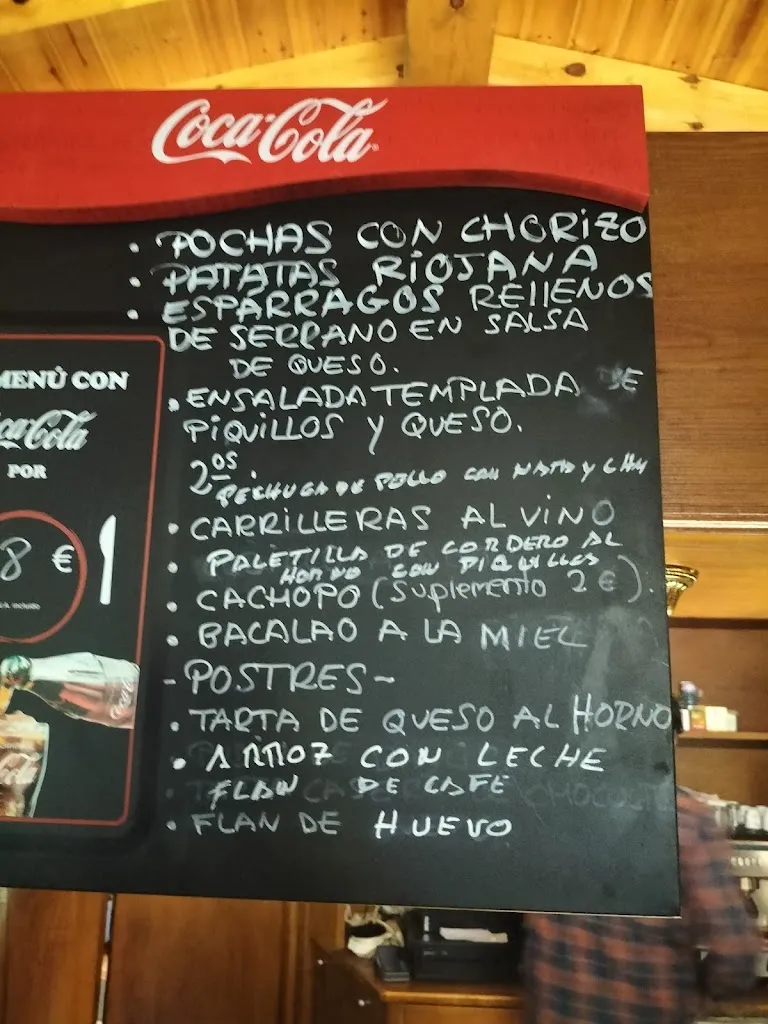 Coca-Cola
• POCHAS CON CHORIZO
• PATATAS RIOJANA
• ESPÁRRAGOS RELLENOS
DE SERRANO EN SALSA
DE QUESO.
• ENSALADA TEMPLADA DE
PIQUILLOS Y QUESO.
2os.
PECHUGA DE POLLO CON NATA Y CHAM
• CARRILLERAS AL VINO
• PALETILLA DE CORDERO AL
HORNO CON PIQUILLOS
• CACHOPO (Suplemento 2€).
• BACALAO A LA MIEL
- POSTRES -
• TARTA DE QUESO AL HORNO
• ARROZ CON LECHE
• FLAN DE CAFE
• FLAN DE HUEVO
MENÚ CON
Coca-Cola
POR
8 €